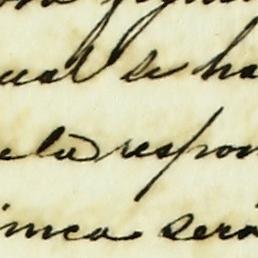 ual se ha
ela respon
unca será